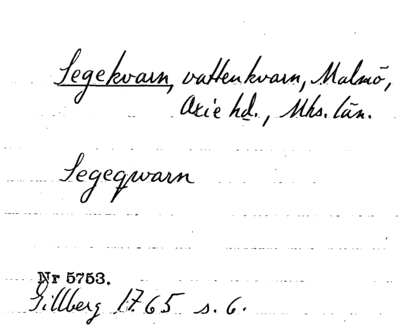 Segekvarn, vattenkvarn, Malmö,
Oxie hd., Mhs. län.
Segeqwarn
Nr 5753.
Gillberg 1765 s. 6.